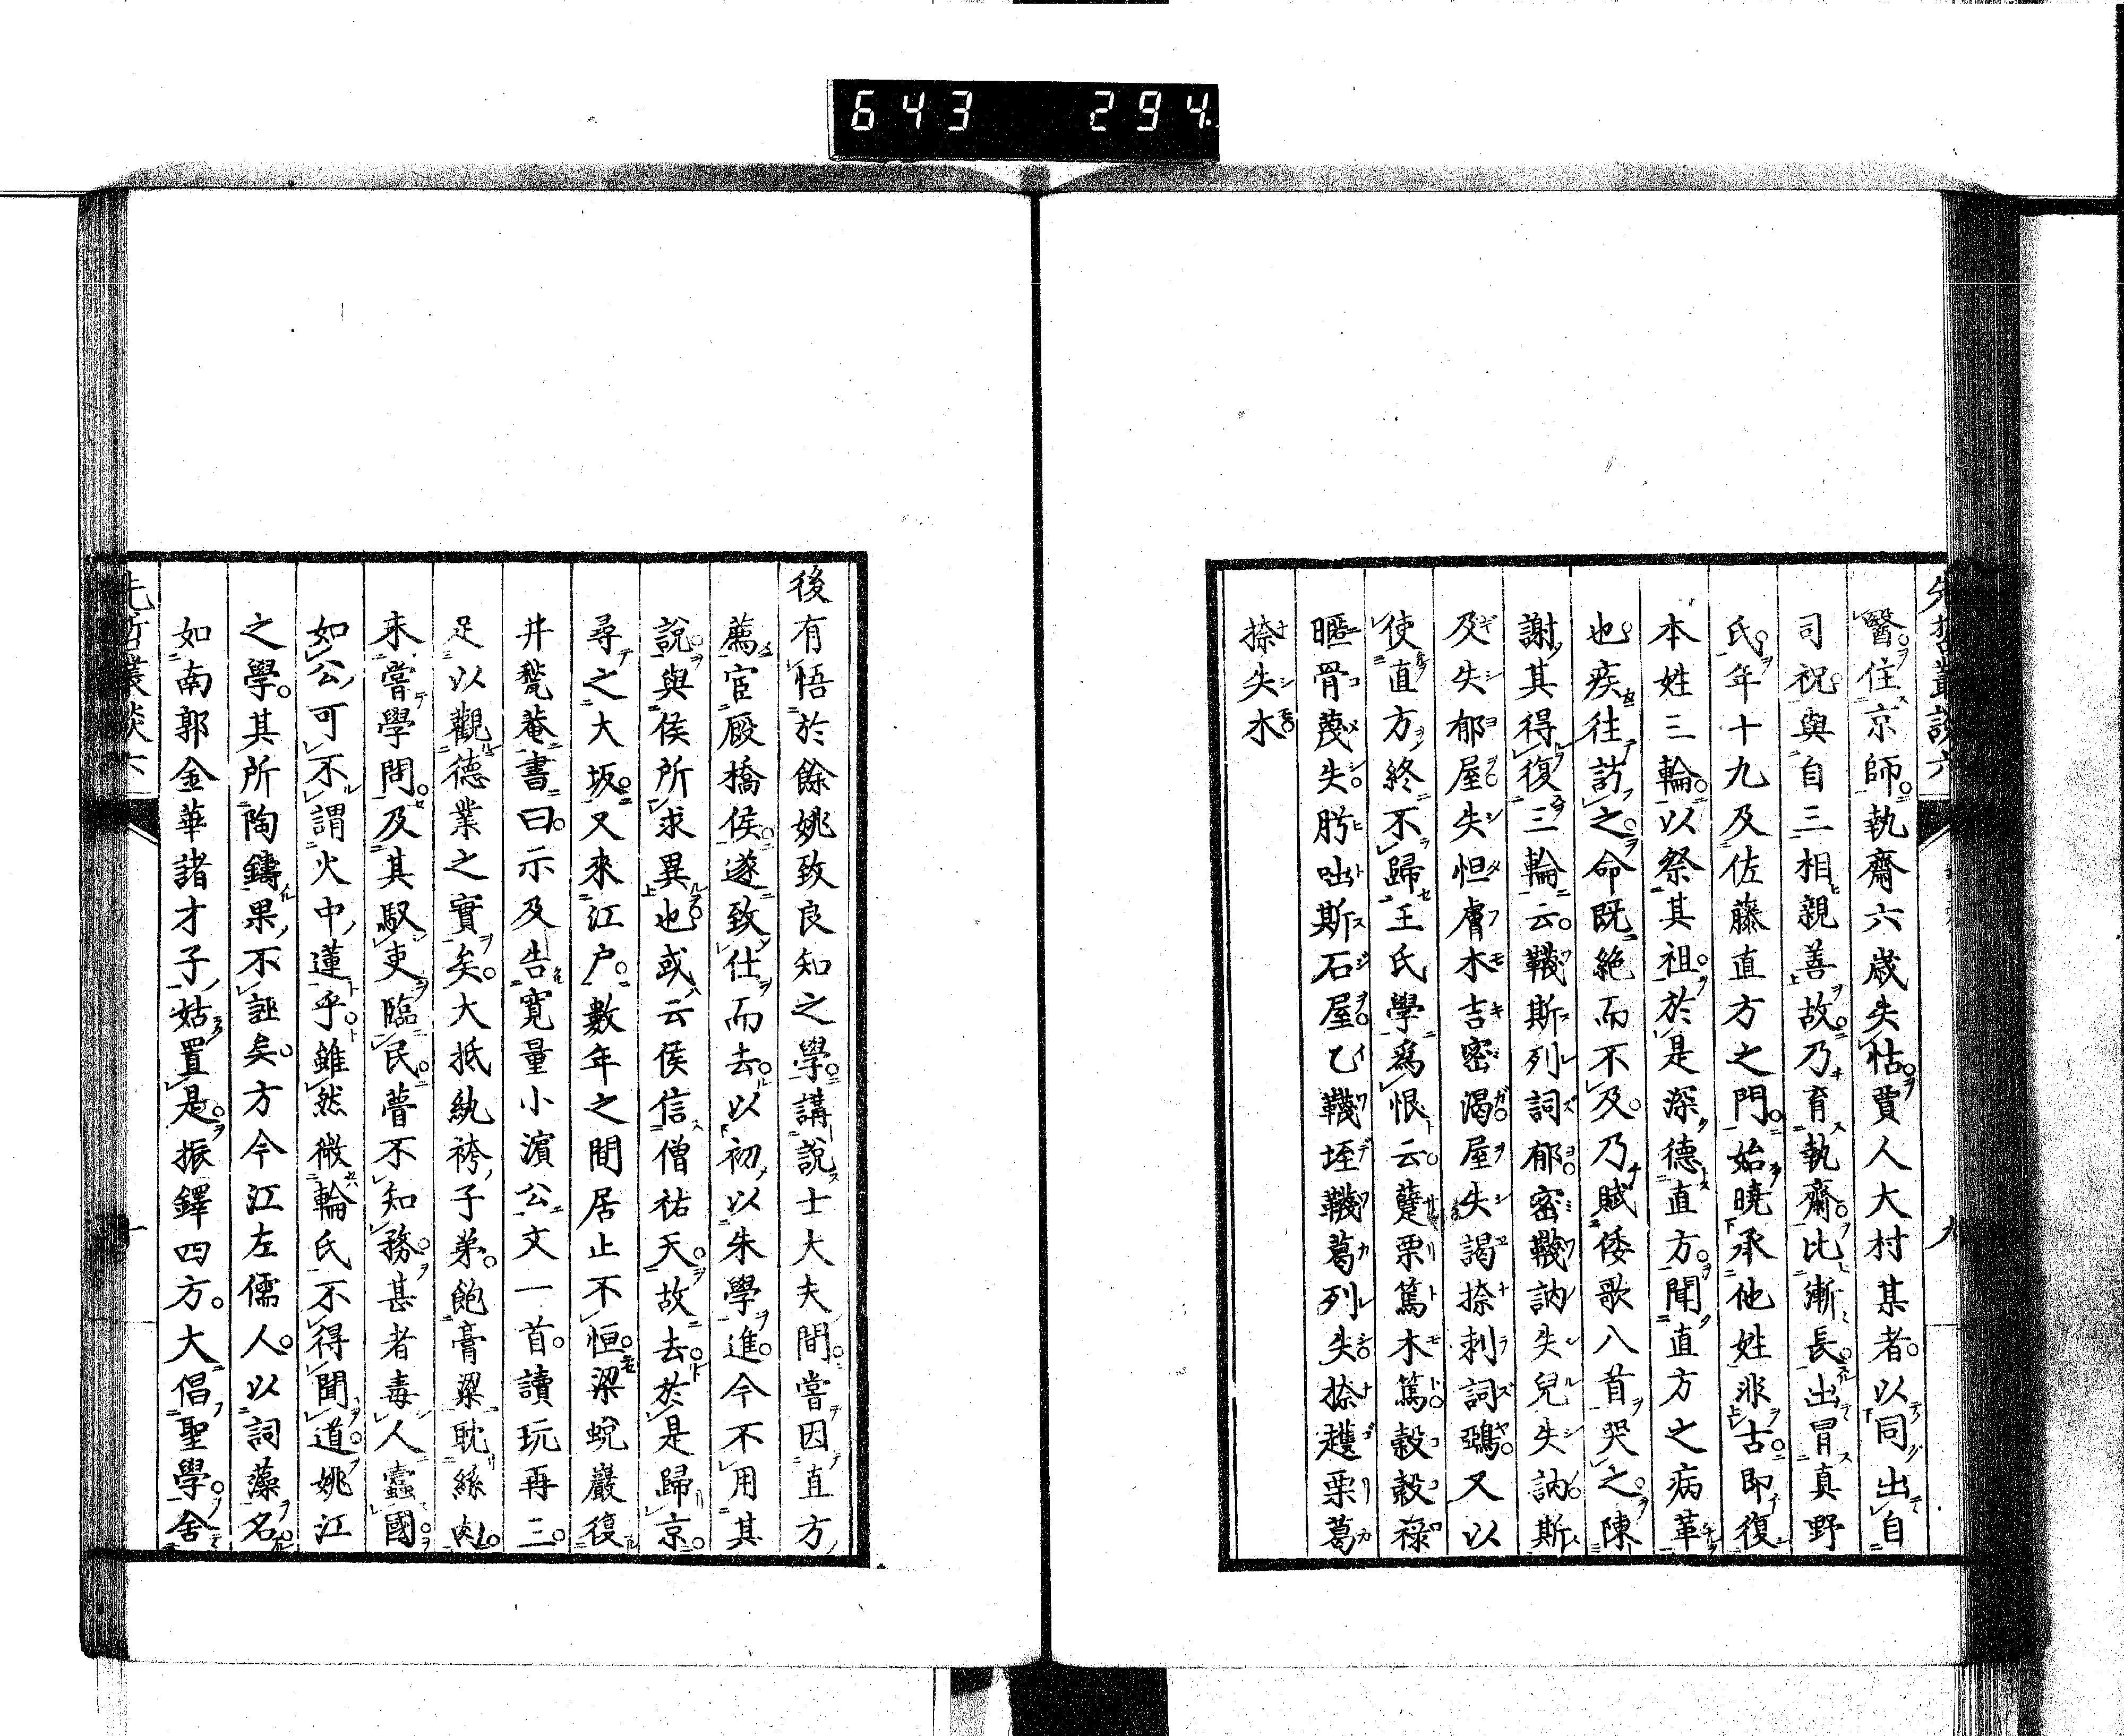 643 294
先哲叢談六
醫住京師執齋六歲失怙賈人大村某者以同出自
司祝與自三相親善故乃育執齋比漸長出冒真野
氏年十九及佐藤直方之門始曉承他姓非古即復
本姓三輪以祭其祖於是深德直方聞直方之病革
也疾往訪之命既絕而不及乃賦倭歌八首哭之陳
謝其得復三輪云韈斯列詞郁密韈訥失兒失訥斯
及失郁屋失怛膚木吉密渴屋失謁捺刺詞鵶又以
使直方終不歸王氏學爲恨云躠栗篤木篤穀穀祿
暱骨蔑失肹咄斯石屋乙韈垤韈葛列失捺䪝栗葛
捺失木
後有悟於餘姚致良知之學講說士大夫間嘗因直方
薦宦厩橋侯遂致仕而去以初以朱學進今不用其
說與侯所求異也或云侯信僧祐天故去於是歸京
尋之大坂又來江戶數年之間居止不恒梁蛻巖復
井甃菴書曰示及告寬量小濵公文一首讀玩再三
足以觀德業之實矣大抵紈袴子弟飽膏粱耽絲肉
未嘗學問及其馭吏臨民瞢不知務甚者毒人蠹國
如公可不謂火中蓮乎雖然微輪氏不得聞道姚江
之學其所陶鑄果不誣矣方今江左儒人以詞藻名
如南郭金華諸才子姑置是振鐸四方大倡聖學舍
先哲叢談六